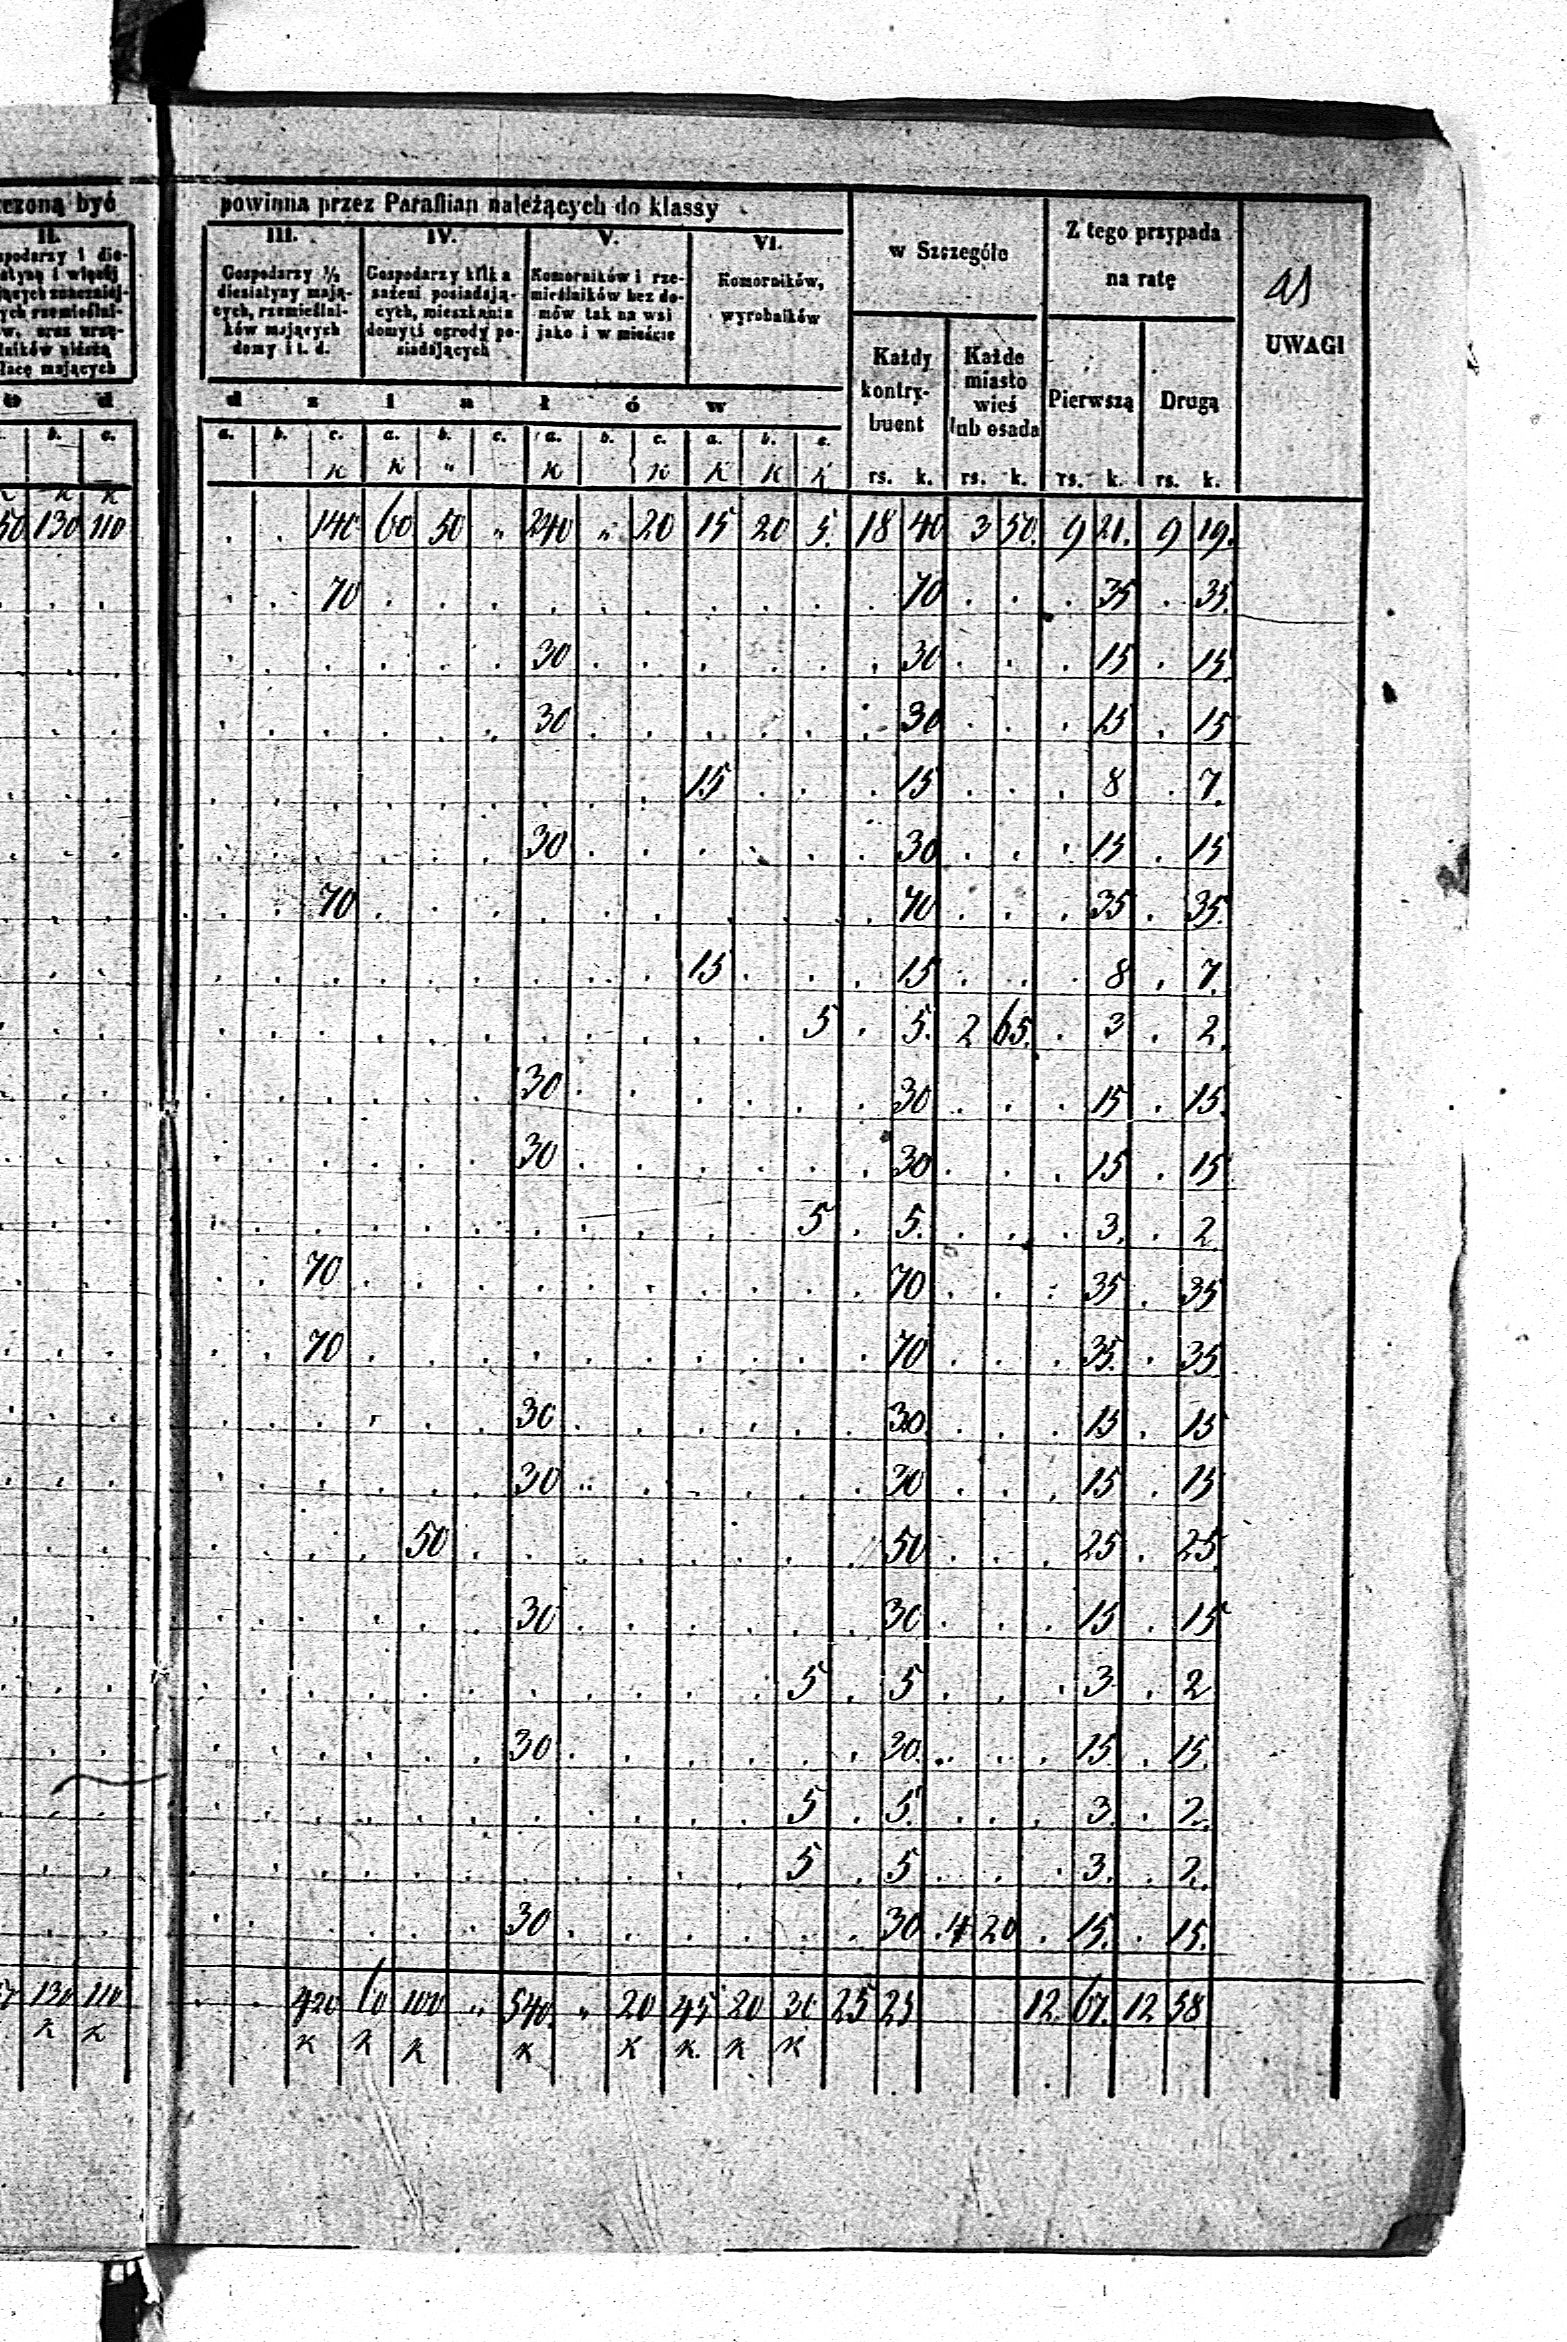 czoną być powinna przez Parafian należących do klassy w Szczególe Z tego przypada na ratę 11 UWAGI
II. III. IV. V. VI.
Gospodarzy ½ diesiatyny mających, rzemieślników mających domy i t. d.
Gospodarzy kilka sażeni posiadających, mieszkania domy i ogrody posiadających
Komorników i rzemieślników bez domów tak na wsi jako i w mieście
Komorników, wyrobników
Każdy kontrybuent
Każde miasto wieś lub osada
Pierwszą Drugą
o d d z i a ł ó w
b. c. a. b. c. a. b. c. a. b. c. a. b. c. rs. k. rs. k. rs. k. rs. k.
K K K K " K K K K K
50 130 110 . . 140 60 50 " 240 " 20 15 20 5. 18 40 3 50. 9 21. 9 19.
70 70 35 35.
30 30 15 15
30 30 15 15
15 15 8 7.
30 30 15 15
70 70 35 35.
15 15 8 7.
5 5. 2 65. 3 2.
30 30 15 15.
30 30 15 15
5 5. 3. 2
70 70 35 35
70 70 35. 35
30 30. 15 15
30 30 15 15
50 50 25 25
30 30 15 15
5 5 3 2
30 30. 15. 15.
5 5. 3. 2.
5 5 3. 2.
30 30 4 20 15. 15.
130 110 420 60 100 " 540. " 20 45 20 30 25 25 12. 67. 12 58
K K K K K K K K K K